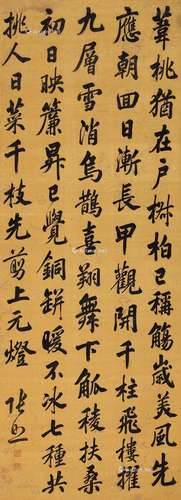 葦桃猶在戶椒柏已稱觴歲美風先
應朝回日漸長甲觀開千柱飛樓擢
九層雪消烏鵲喜翔舞下觚稜扶桑
初日映簾昇已覺銅缾暖不冰七種共
挑人日菜千枝先剪上元燈 張照